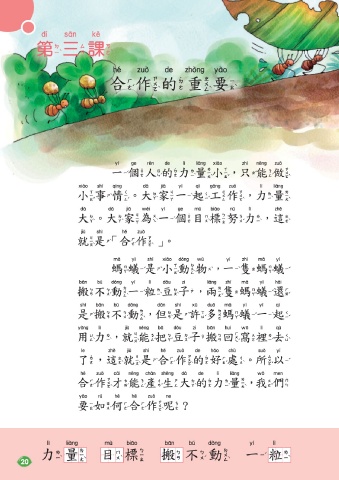 dì sān kè
第三課
hé zuò de zhòng yào
合作的重要
yí ge rén de lì liàng xiǎo zhǐ néng zuò
一個人的力量小，只能做
xiǎo shì qíng dà jiā yì qǐ gōng zuò lì liàng
小事情。大家一起工作，力量
dà dà jiā wèi yí ge mù biāo nǔ lì zhè
大。大家為一個目標努力，這
jiù shì hé zuò
就是「合作」。
mǎ yǐ shì xiǎo dòng wù yì zhī mǎ yǐ
螞蟻是小動物，一隻螞蟻
bān bú dòng yí lì dòu zi liǎng zhī mǎ yǐ hái
搬不動一粒豆子，兩隻螞蟻還
shì bān bú dòng dàn shì xǔ duō mǎ yǐ yì qǐ
是搬不動，但是許多螞蟻一起
yòng lì jiù néng bǎ dòu zi bān huí wō lǐ qù
用力，就能把豆子搬回窩裡去
le zhè jiù shì hé zuò de hǎo chù suǒ yǐ
了，這就是合作的好處。所以
hé zuò cái néng chǎn shēng dà de lì liàng wǒ men
合作才能產生大的力量，我們
yào rú hé hé zuò ne
要如何合作呢？
lì liàng mù biāo bān bú dòng yí lì
力量 目標 搬不動 一粒
20